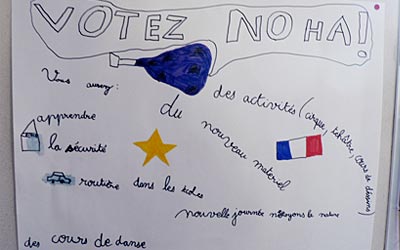 VOTEZ NOHA!
Vous aurez :
des activités (cirque, théâtre, cours de dessins)
du nouveau materiel
apprendre
la sécurité
routière dans les écoles
nouvelle journée nettoyons la nature
des cours de danse